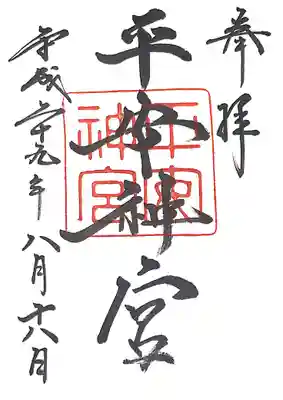 奉拝
平安神宮
平安
神宮
平成二十九年八月十八日